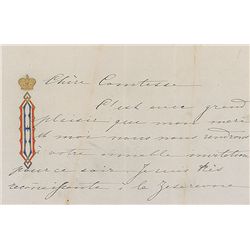 Chère Comtesse
C'est avec grand
plaisir que mon mari
et moi nous nous rendrons
à votre aimable invitation
pour ce soir. Je suis très
reconnaissante à la